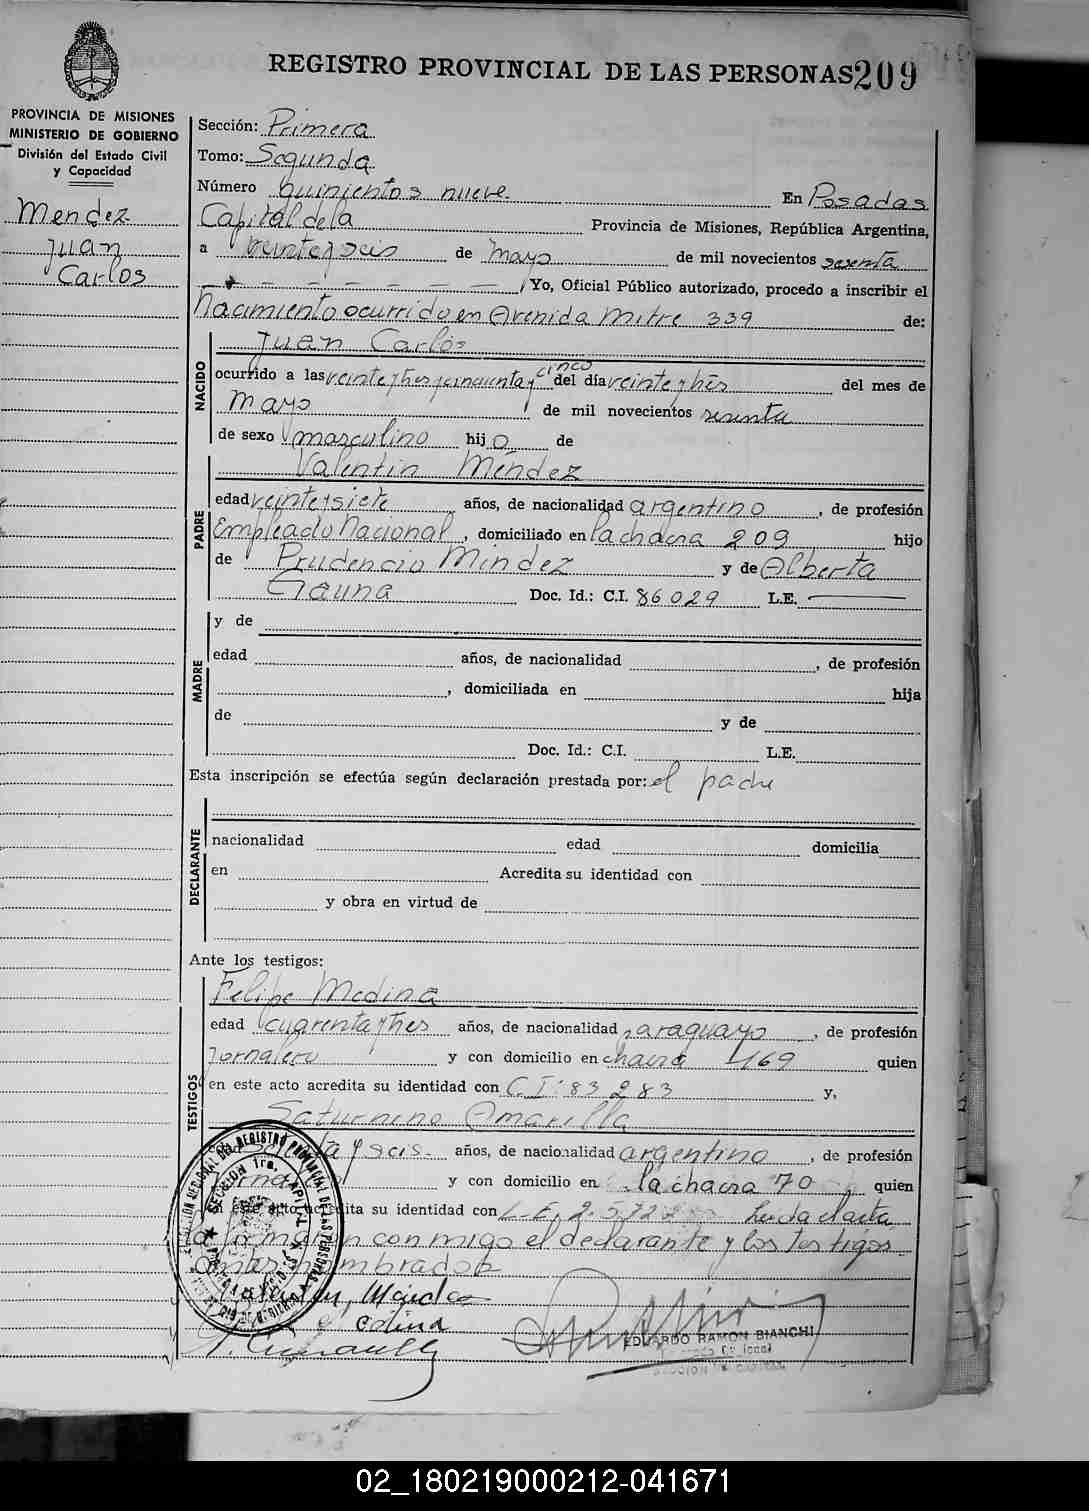 REGISTRO PROVINCIAL DE LAS PERSONAS 209
PROVINCIA DE MISIONES
MINISTERIO DE GOBIERNO
División del Estado Civil
y Capacidad
Mendez
Juan
Carlos
Sección: Primera
Tomo: Segunda
Número quinientos nueve En Posadas
Capital de la Provincia de Misiones, República Argentina,
a veinteyseis de mayo de mil novecientos sesenta
Yo, Oficial Público autorizado, procedo a inscribir el
Nacimiento ocurrido en Avenida Mitre 339 de:
NACIDO
Juan Carlos
ocurrido a las veinteytres y cincuenta y cinco del día veinteytres del mes de
Mayo de mil novecientos sesenta
de sexo masculino hijo de
PADRE
Valentin Méndez
edad veinteysiete años, de nacionalidad argentino, de profesión
Empleado Nacional, domiciliado en la chacra 209 hijo
de Prudencio Mindez y de Alberta
Gauna Doc. Id.: C.I. 86029 L.E.
MADRE
y de
edad años, de nacionalidad , de profesión
, domiciliada en hija
de y de
Doc. Id.: C.I. L.E.
Esta inscripción se efectúa según declaración prestada por: el padre
DECLARANTE
nacionalidad edad domicilia
en Acredita su identidad con
y obra en virtud de
Ante los testigos:
TESTIGOS
Felipe Medina
edad cuarentaytres años, de nacionalidad paraguayo, de profesión
Jornalero y con domicilio en chacra 169 quien
en este acto acredita su identidad con C.I: 83283 y,
Saturnino Amarilla
y seis años, de nacionalidad argentino, de profesión
y con domicilio en la chacra 70 quien
en este acto acredita su identidad con L.E. Leida el acta
la firmaran conmigo el declarante y los testigos
antes nombrados
EDUARDO RAMON BIANCHI
02_180219000212-041671